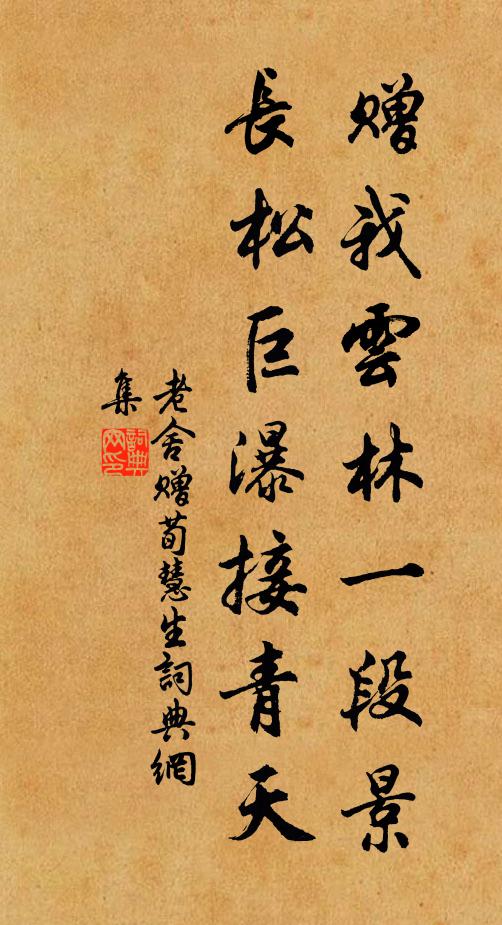 赠我雲林一段景
長松巨瀑接青天
老舍赠荀慧生詞典網
集
詞典
网印